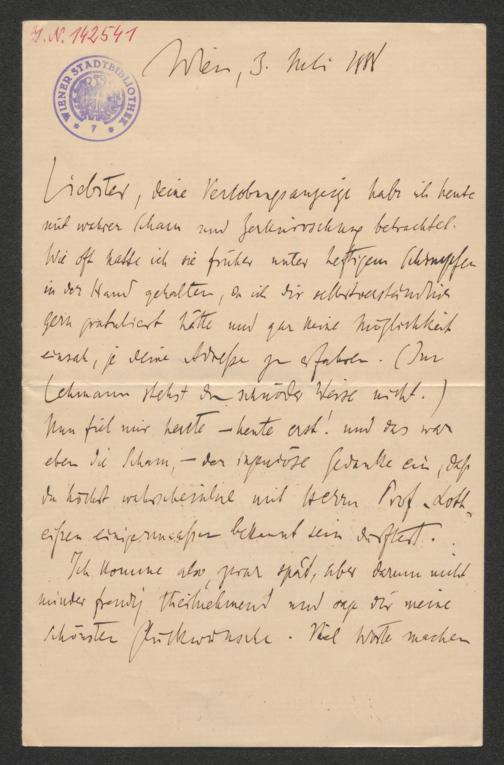 J. N. 142541
WIENER STADTBIBLIOTHEK
* 7 *
Wien, 3. Juli
Liebster, deine Verlobungsanzeige habe ich heute
mit wahrer Scham und Zerknirschung betrachtet.
Wie oft hatte ich sie früher unter heftigem Schimpfen
in der Hand gehalten, da ich dir selbstverständlich
gern gratuliert hätte und gar keine Möglichkeit
einsah, je deine Adresse zu erfahren. (Im
Lehmann stehst du schnöder Weise nicht.)
Nun fiel mir heute – heute erst! und das war
eben die Scham, – der ingeniöse Gedanke ein, daß
du höchst wahrscheinlich mit Herrn Prof. Loth-
eißen einigermaßen bekannt sein dürftest.
Ich komme also zwar spät, aber darum nicht
minder freudig theilnehmend und sage dir meine
schönsten Glückwünsche. Viel Worte machen